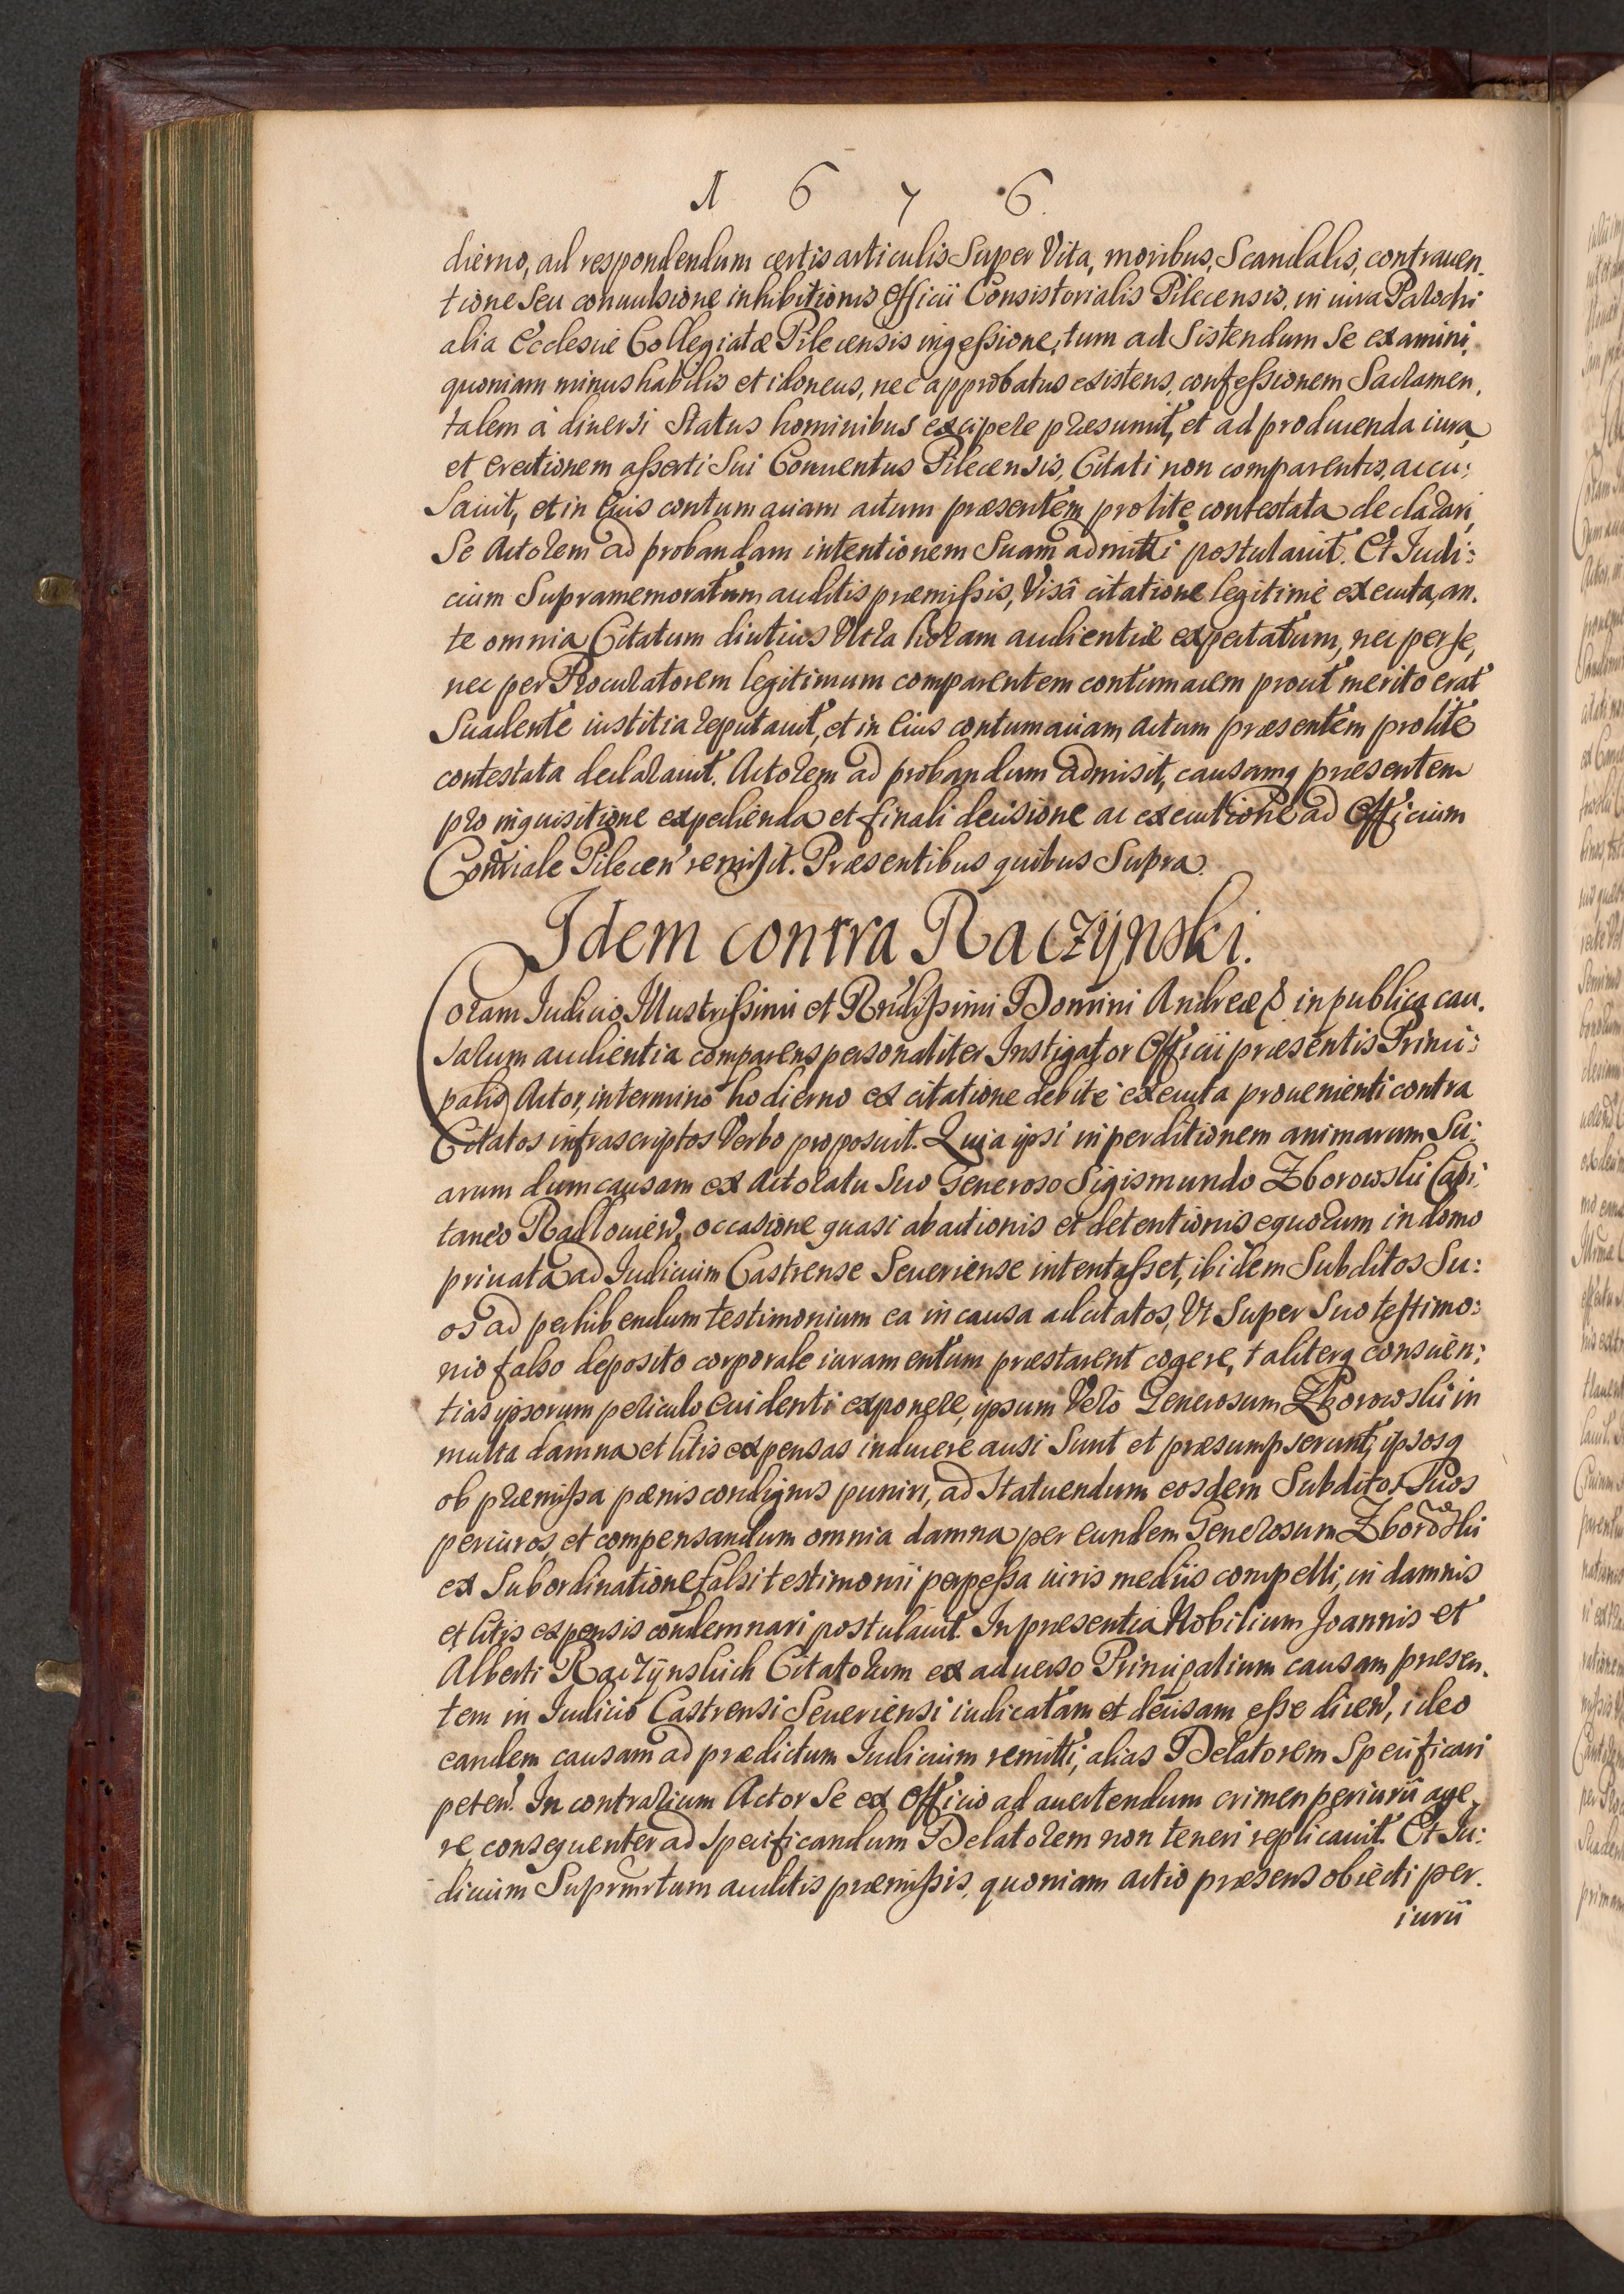 1 6 7 6.
dierno, ad respondendum certis articulis Super Vita, moribus, Scandalis, contrauen-
tione Seu conuulsione inhibitionis Officii Consistorialis Pilecensis, in iura Parochi
alia Ecclesiæ Collegiatæ Pilecensis ingeßione, tum ad Sistendum Se examini,
quoniam minus habilis et idoneus, nec approbatus existens, confeßionem Sacramen,
talem à diuersi Status hominibus excipere præsumit, et ad producenda iura
et erectionem aßerti Sui Conuentus Pilecensis, Citati non comparentis, accu:
Sauit, et in Eius contumaciam actum præsentem pro lite contestata declarari,
Se Actorem ad probandam intentionem Suam admitti postulauit. Et Iudi:
cium Supramemoratum auditis præmißis, Visâ citatione legitimè executa, an.
te omnia Citatum diutius Vltra horam audientiæ expectatum, nec per se,
nec per Procuratorem legitimum comparentem contumacem prout merito erat
Suadente iustitia reputauit, et in Eius contumaciam actum præsentem pro lite
contestata declarauit. Actorem ad probandum admisit, causamq præsentem
pro inquisitione expedienda et finali decisione ac executione ad Officium
Conriale Pilecen̄ remisit. Præsentibus quibus Supra.
Idem contra Raczÿnski.
Coram Iudicio Illustrißimi et Rn̄dißimi Domini Andreæ & in publica cau.
sarum audientia comparens personaliter Instigator Officii præsentis Princi:
palis Actor, in termino hodierno ex citatione debitè executa prouenienti contra
Citatos infrascriptos Verbo proposuit. Quia ipsi in perditionem animarum Su:
arum dum causam ex Actoratu Suo Generoso Sigismundo Zborowski Capi:
taneo Radłouien̄, occasione quasi abactionis et detentionis equorum in domo
priuata ad Iudicium Castrense Seueriense intentaßet, ibidem Subditos Su:
os ad perhibendum testimonium ea in causa adcitatos, Vt Super Suo testimo:
nio falso deposito corporale iuramentum præstarent cogere, taliterq conscien:
tias ipsorum periculo euidenti exponere, ipsum Verò Generosum Zborowski in
multa damna et litis expensas inducere ausi Sunt et præsumpserunt, ipsosq
ob præmißa pœnis condignis puniri, ad Statuendum eosdem Subditos Suos
periuros, et compensandum omnia damna per eundem Generosum Zborowski
ex Subordinatione falsi testimonii perpeßa iuris mediis compelli, in damnis
et litis expensis condemnari postulauit. In præsentia Nobilium Joannis et
Alberti Raczÿnskich Citatorum ex aduerso Principalium causam præsen.
tem in Iudicio Castrensi Seueriensi iudicatam et decisam eße dicen̄, ideo
eandem causam ad prædictum Iudicium remitti, alias Delatorem Specificari
peten̄. In contrarium Actor Se ex Officio ad auertendum crimen periurii age,
re consequenter ad Specificandum Delatorem non teneri replicauit. Et Iu:
dicium Suprmrtum auditis præmißis, quoniam actio præsens obiecti per.
iurii